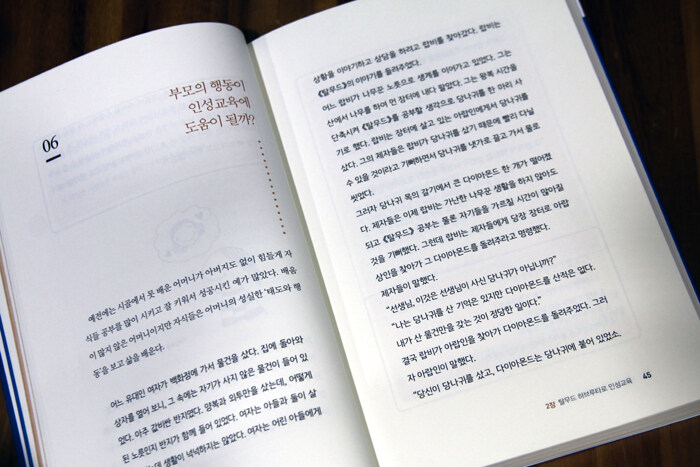 06
부모의 행동이
인성교육에
도움이 될까?
예전에는 시골에서 못 배운 어머니가 아버지도 없이 힘들게 자
식들 공부를 많이 시키고 잘 키워서 성공시킨 예가 많았다. 배움
이 많지 않은 어머니이지만 자식들은 어머니의 성실한 '태도와 행
동'을 보고 삶을 배운다.
어느 유대인 여자가 백화점에 가서 물건을 샀다. 집에 돌아와
상자를 열어 보니, 그 속에는 자기가 사지 않은 물건이 들어 있
었다. 아주 값비싼 반지였다. 양복과 외투만을 샀는데, 어떻게
된 노릇인지 반지가 함께 들어 있었다. 여자는 아들과 둘이 살
데 생활이 넉넉하지는 않았다. 여자는 어린 아들에게
상황을 이야기하고 상담을 하려고 랍비를 찾아갔다. 랍비는
《탈무드》의 이야기를 들려주었다.
어느 랍비가 나무꾼 노릇으로 생계를 이어가고 있었다. 그는
산에서 나무를 하여 먼 장터에 내다 팔았다. 그는 왕복 시간을
단축시켜 《탈무드》를 공부할 생각으로 당나귀를 한 마리 사
기로 했다. 랍비는 장터에 살고 있는 아랍인에게서 당나귀를
샀다. 그의 제자들은 랍비가 당나귀를 샀기 때문에 빨리 다닐
수 있을 것이라고 기뻐하면서 당나귀를 냇가로 끌고 가서 물로
씻었다.
그러자 당나귀 목의 갈기에서 큰 다이아몬드 한 개가 떨어졌
다. 제자들은 이제 랍비는 가난한 나무꾼 생활을 하지 않아도
되고 《탈무드》 공부는 물론 자기들을 가르칠 시간이 많아질
것을 기뻐했다. 그런데 랍비는 제자들에게 당장 장터로 아랍
상인을 찾아가 그 다이아몬드를 돌려주라고 명령했다.
제자들이 말했다.
"선생님, 이것은 선생님이 사신 당나귀가 아닙니까?"
"나는 당나귀를 산 기억은 있지만 다이아몬드를 산적은 없다.
내가 산 물건만을 갖는 것이 정당한 일이다."
결국 랍비가 아랍인을 찾아가 다이아몬드를 돌려주었다. 그러
자 아랍인이 말했다.
"당신이 당나귀를 샀고, 다이아몬드는 당나귀에 붙어 있었소.
2장 탈무드 하브루타로 인성교육 45